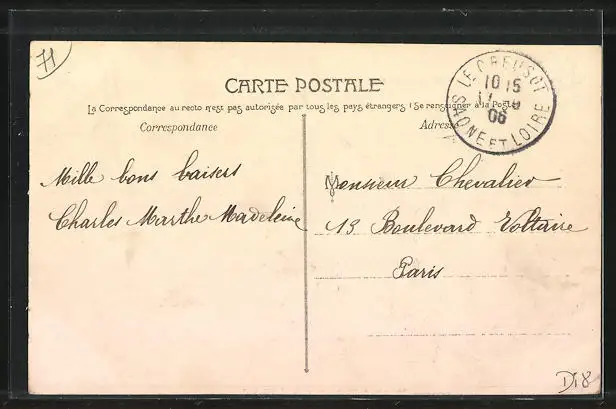 71
CARTE POSTALE
La Correspondance au recto n'est pas autorisée par tous les pays étrangers (Se renseigner à la Poste)
Correspondance
Adresse
LE CREUSOT
10 15
06
SAONE ET LOIRE
Mille bons baisers
Charles Marthe Madeleine
Monsieur Chevalier
13 Boulevard Voltaire
Paris
D18